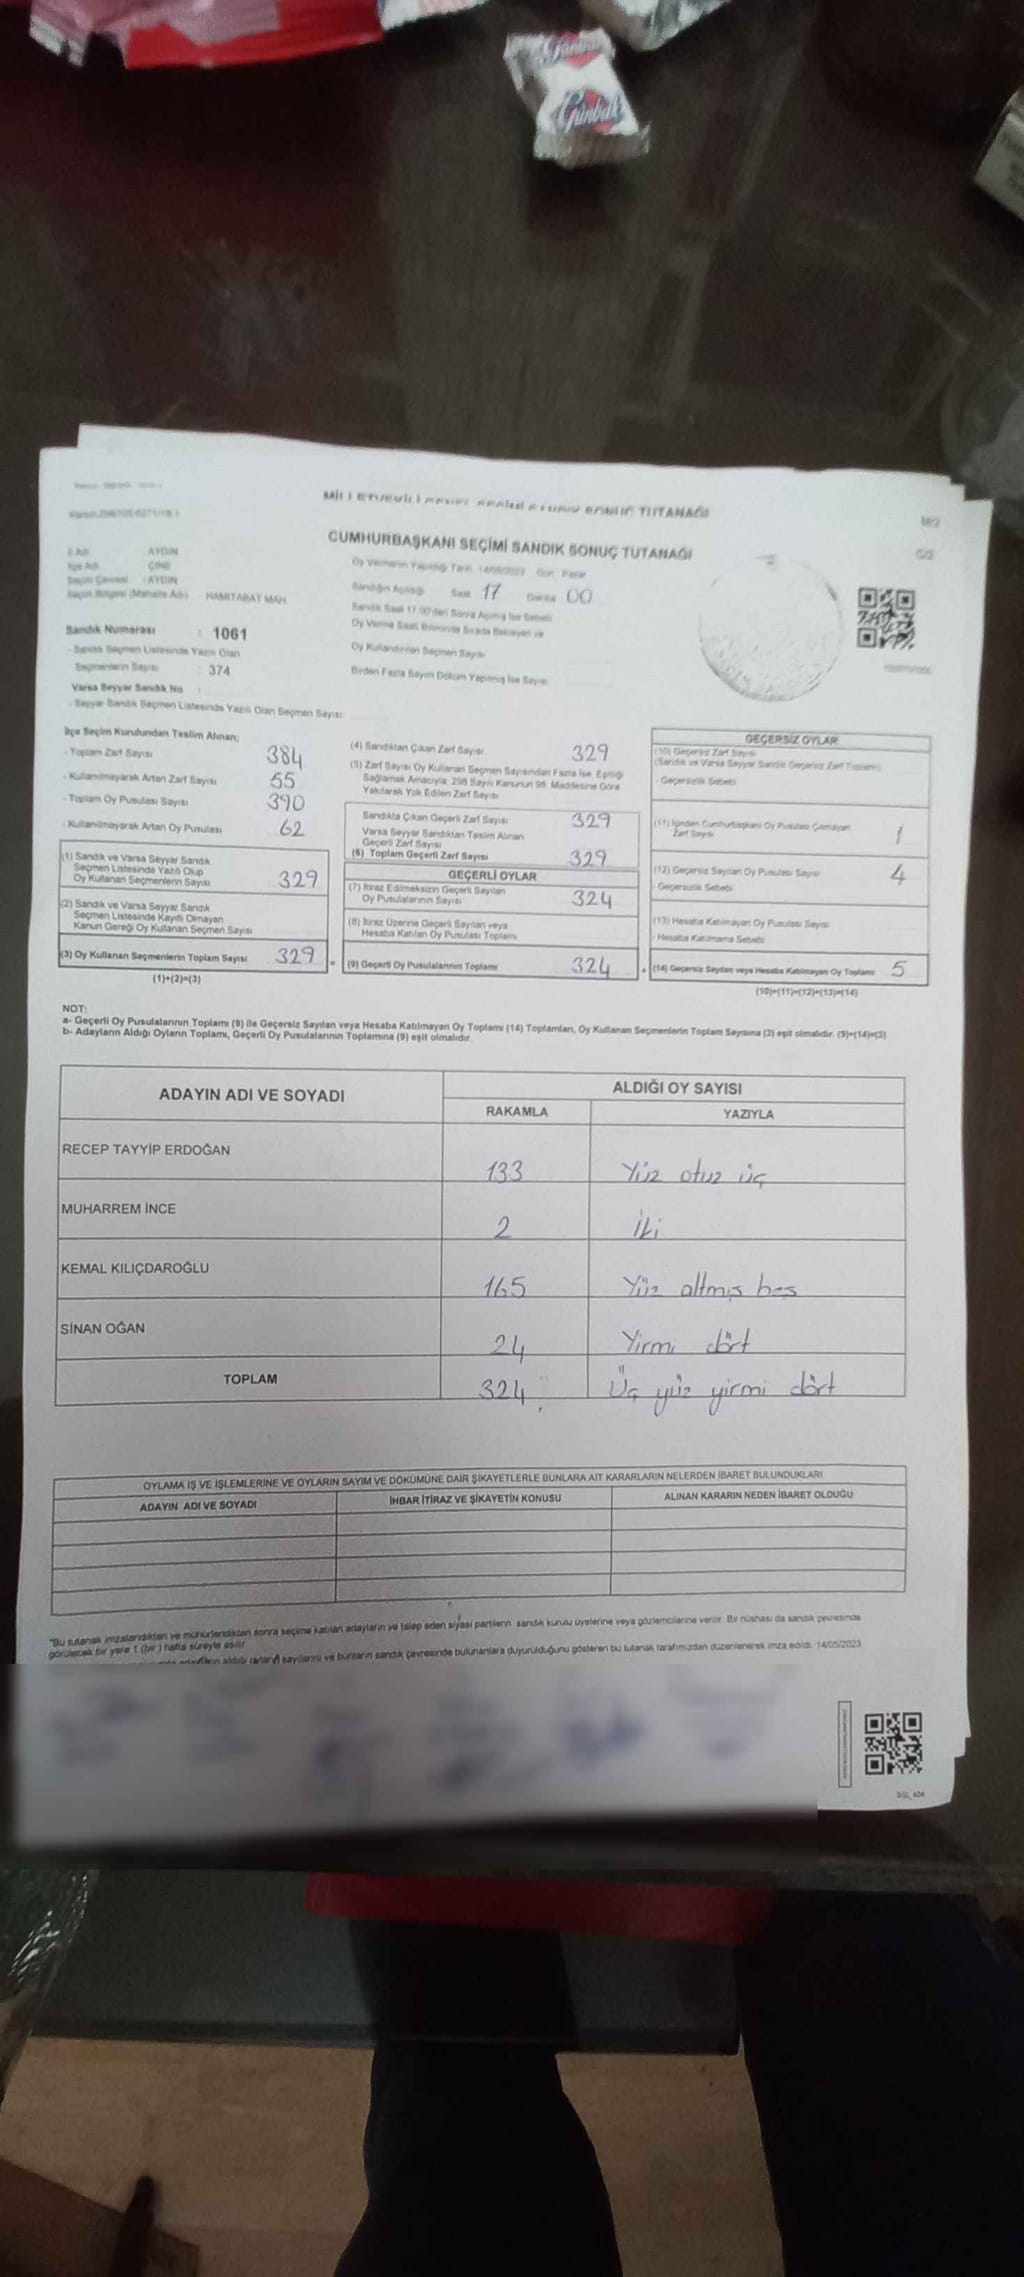 Günbak
MİLLETVEKİLİ GENEL SEÇİMİ SANDIK SONUÇ TUTANAĞI
CUMHURBAŞKANI SEÇİMİ SANDIK SONUÇ TUTANAĞI
İl Adı : AYDIN
İlçe Adı : ÇİNE
Seçim Çevresi : AYDIN
Seçim Bölgesi (Mahalle Adı) : HAMITABAT MAH
Sandık Numarası : 1061
- Sandık Seçmen Listesinde Yazılı Olan
Seçmenlerin Sayısı : 374
Varsa Seyyar Sandık No :
- Seyyar Sandık Seçmen Listesinde Yazılı Olan Seçmen Sayısı:
Oy Vermenin Yapıldığı Tarih 14/05/2023 Gün Pazar
Sandığın Açıldığı Saat 17 Dakika 00
Sandık Saat 17.00'den Sonra Açılmış İse Sebebi
Oy Verme Saati Bitiminde Sırada Bekleyen ve
Oy Kullandırılan Seçmen Sayısı
Birden Fazla Sayım Döküm Yapılmış İse Sayısı
İlçe Seçim Kurulundan Teslim Alınan;
- Toplam Zarf Sayısı 384
- Kullanılmayarak Artan Zarf Sayısı 55
- Toplam Oy Pusulası Sayısı 390
- Kullanılmayarak Artan Oy Pusulası 62
(1) Sandık ve Varsa Seyyar Sandık
Seçmen Listesinde Yazılı Olup
Oy Kullanan Seçmenlerin Sayısı 329
(2) Sandık ve Varsa Seyyar Sandık
Seçmen Listesinde Kayıtlı Olmayan
Kanun Gereği Oy Kullanan Seçmen Sayısı
(3) Oy Kullanan Seçmenlerin Toplam Sayısı 329
(1)+(2)=(3)
(4) Sandıktan Çıkan Zarf Sayısı 329
(5) Zarf Sayısı Oy Kullanan Seçmen Sayısından Fazla İse, Eşitliği
Sağlamak Amacıyla, 298 Sayılı Kanunun 98. Maddesine Göre
Yakılarak Yok Edilen Zarf Sayısı
Sandıkta Çıkan Geçerli Zarf Sayısı 329
Varsa Seyyar Sandıktan Teslim Alınan
Geçerli Zarf Sayısı
(6) Toplam Geçerli Zarf Sayısı 329
GEÇERLİ OYLAR
(7) İtiraz Edilmeksizin Geçerli Sayılan
Oy Pusulalarının Sayısı 324
(8) İtiraz Üzerine Geçerli Sayılan veya
Hesaba Katılan Oy Pusulası Toplamı
(9) Geçerli Oy Pusulalarının Toplamı 324
GEÇERSİZ OYLAR
(10) Geçersiz Zarf Sayısı
(Sandık ve Varsa Seyyar Sandık Geçersiz Zarf Toplamı)
- Geçersizlik Sebebi
(11) İçinden Cumhurbaşkanı Oy Pusulası Çıkmayan
Zarf Sayısı 1
(12) Geçersiz Sayılan Oy Pusulası Sayısı 4
- Geçersizlik Sebebi
(13) Hesaba Katılmayan Oy Pusulası Sayısı
- Hesaba Katılmama Sebebi
(14) Geçersiz Sayılan veya Hesaba Katılmayan Oy Toplamı 5
(10)+(11)+(12)+(13)=(14)
NOT:
a- Geçerli Oy Pusulalarının Toplamı (9) ile Geçersiz Sayılan veya Hesaba Katılmayan Oy Toplamı (14) Toplamları, Oy Kullanan Seçmenlerin Toplam Sayısına (3) eşit olmalıdır. (9)+(14)=(3)
b- Adayların Aldığı Oyların Toplamı, Geçerli Oy Pusulalarının Toplamına (9) eşit olmalıdır.
ADAYIN ADI VE SOYADI ALDIĞI OY SAYISI
RAKAMLA YAZIYLA
RECEP TAYYİP ERDOĞAN 133 Yüz otuz üç
MUHARREM İNCE 2 İki
KEMAL KILIÇDAROĞLU 165 Yüz altmış beş
SİNAN OĞAN 24 Yirmi dört
TOPLAM 324 Üç yüz yirmi dört
OYLAMA İŞ VE İŞLEMLERİNE VE OYLARIN SAYIM VE DÖKÜMÜNE DAİR ŞİKAYETLERLE BUNLARA AİT KARARLARIN NELERDEN İBARET BULUNDUKLARI
ADAYIN ADI VE SOYADI İHBAR İTİRAZ VE ŞİKAYETİN KONUSU ALINAN KARARIN NEDEN İBARET OLDUĞU
"Bu tutanak imzalandıktan ve mühürlendikten sonra seçime katılan adayların ve talep eden siyasi partilerin sandık kurulu üyelerine veya gözlemcilerine verilir. Bir nüshası da sandık çevresinde
görülecek bir yere 1 (bir) hafta süreyle asılır.
adayların aldığı oyların sayılarını ve bunların sandık çevresinde bulunanlara duyurulduğunu gösteren bu tutanak tarafımızdan düzenlenerek imza edildi. 14/05/2023